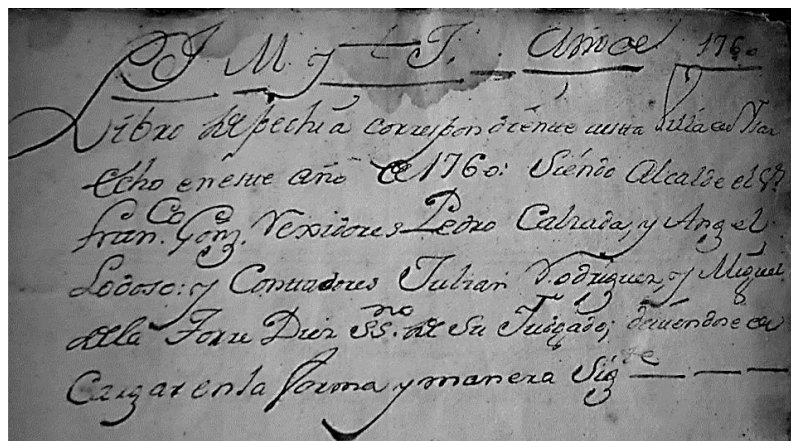 J. M. y J. Año de 1760
Libro de pechia correspondiente a esta Villa de
echo en este año de 1760: Siendo Alcalde el Sr
Franco. Gonz. Rexidores Pedro Calzada, y Angel
Lodoso: y Contadores Julian Rodriguez, y Miguel
de la Torre Diez ssno. de su Juzgado;
Cargar en la forma y manera Sigte